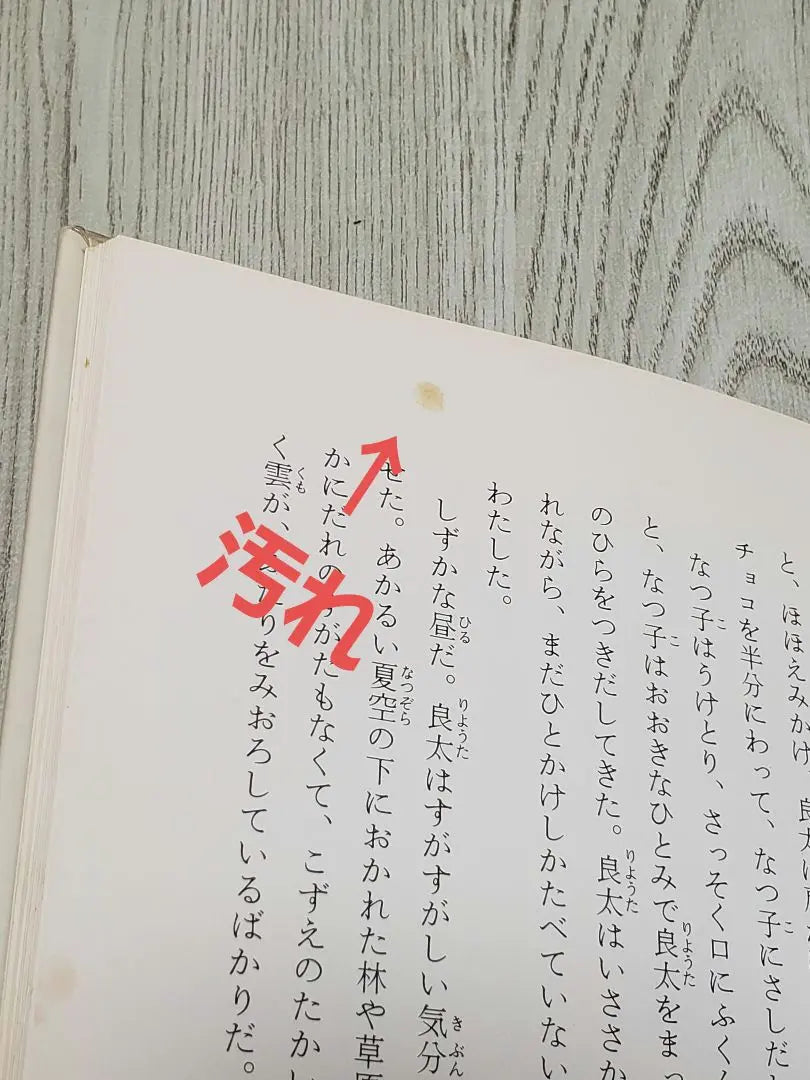 と、ほほえみかけ、良太は
チョコを半分にわって、なつ子にさしだ
なつ子はうけとり、さっそく口にふく
と、なつ子はおおきなひとみで良太をまっ
のひらをつきだしてきた。良太はいささか
れながら、まだひとかけしかたべていない
わたした。
しずかな昼だ。良太はすがすがしい気分
せた。あかるい夏空の下におかれた林や草原
かにだれの がたもなくて、こずえのたかい
く雲が、 たりをみおろしているばかりだ。
汚れ